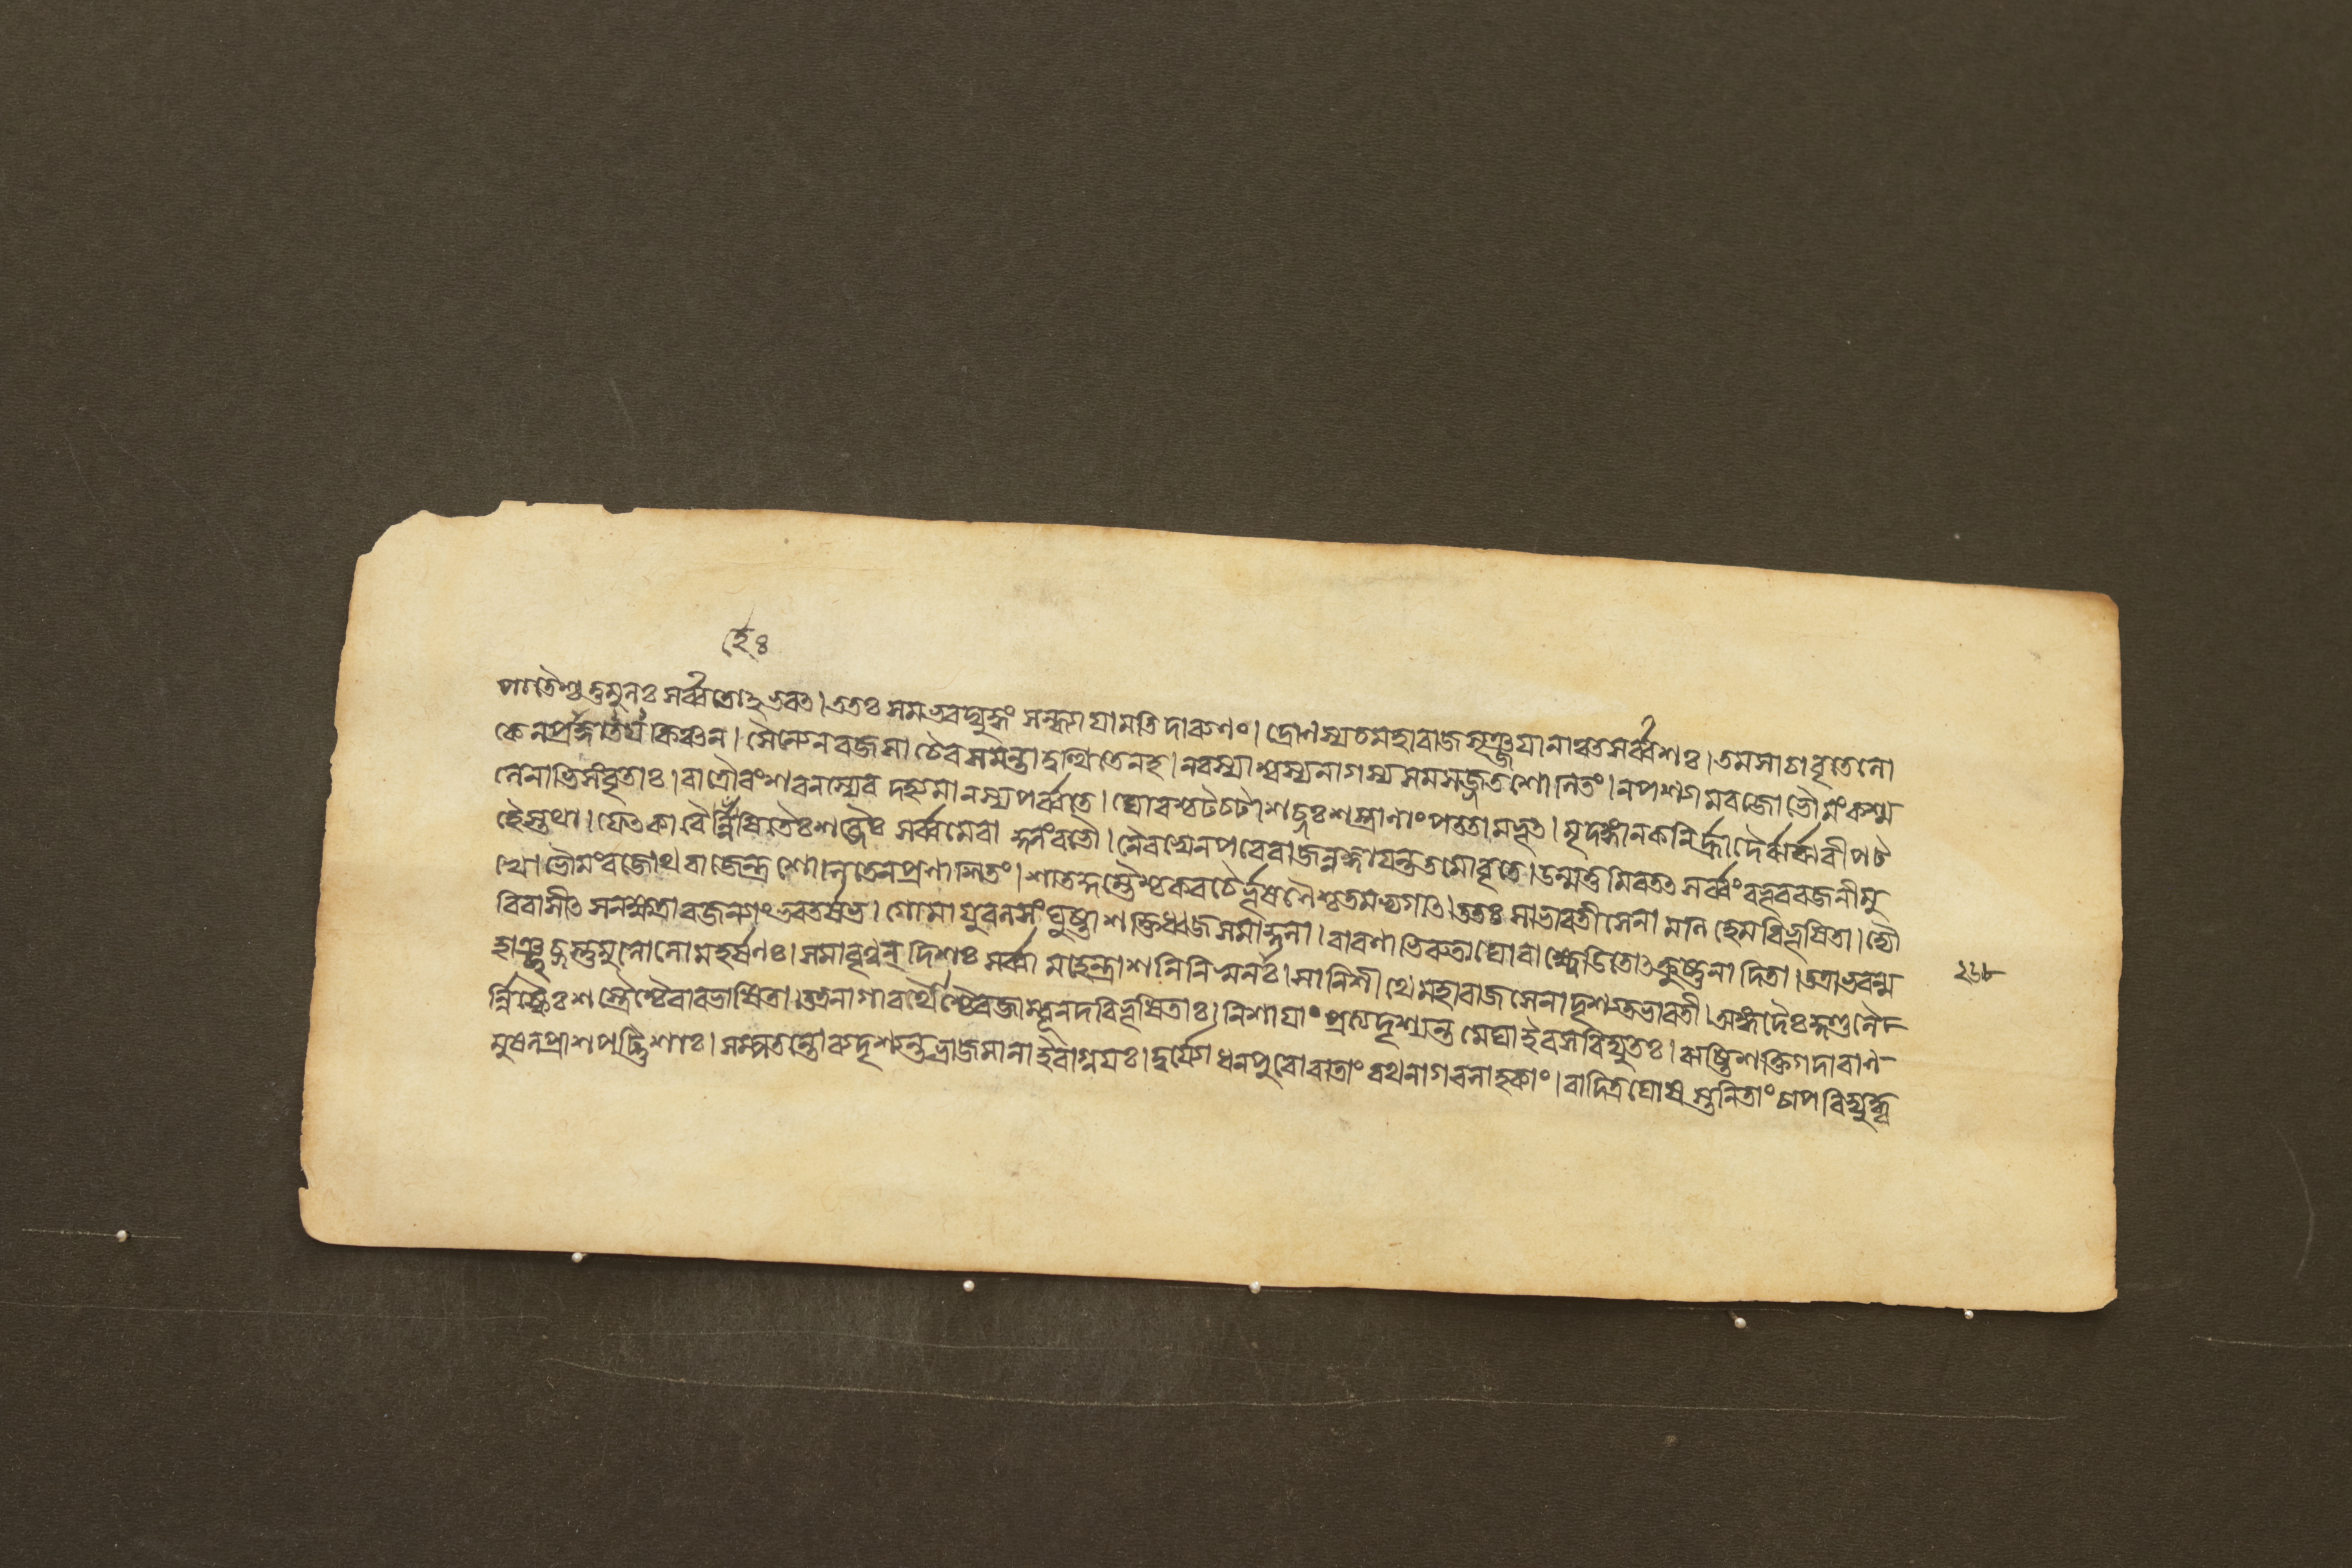 পাতৈশ্চতুমুলঃ সর্ব্বতোহভবৎ। ততঃ সমভবদ্যুদ্ধং সন্ধ্যায়ামতিদারুণং। দ্রোণস্যচমহারাজসৃঞ্জয়ানাঞ্চসর্ব্বশঃ। তমসাচাবৃতেলো
কেনপ্রাজ্ঞায়তকিঞ্চন। সৈন্যেনরজসাচৈবসমন্তাদুত্থিতেনহ। নরস্যাশ্বস্যনাগস্যসমসজ্জতশোণিতং। নপশ্যামরজোভৌমংকশ্ম
লেনাভিসংবৃতাঃ। রাত্রৌবংশবনস্যেবদহ্যমানস্যপর্ব্বতে। ঘোরশ্চটচটাশব্দঃশস্ত্রাণাংপততামভূৎ। মৃদঙ্গানকনির্হ্রাদৈর্ঝর্ঝরীপট
হৈস্তথা। ফেৎকারৈর্হ্রেষিতৈঃশব্দৈঃ সর্ব্বমেবাকুলংবভৌ। নৈবস্বেনপরেরাজন্প্রাজ্ঞায়ন্ততমোবৃতে। উন্মত্তমিবতৎসর্ব্বংবভূবরজনীমু
খে। ভৌমংরজোথরাজেন্দ্রশোণিতেনপ্রণাশিতং। শাতকুম্ভৈশ্চকবচৈর্ভূষণৈশ্চতমভ্যগাৎ। ততঃ সাভারতীসেনা মণিহেমবিভূষিতা। দ্যৌ
রিবাসীৎ সনক্ষত্রারজন্যাংভরতর্ষভ। গোমায়ুবলসংঘুষ্টাশক্তিধ্বজসমাকুলা। বারণাভিরুতাঘোরাক্ষ্বেডিতোৎক্রুষ্টনাদিতা। তত্রাভবন্ম
হাঞ্ছব্দস্তুমুলোলোমহর্ষণঃ। সমাবৃণ্বন্ দিশঃ সর্ব্বা মহেন্দ্রাশনিনিস্বনঃ। সানিশীথেমহারাজসেনাদৃশ্যতভারতী। অঙ্গদৈঃকুণ্ডলৈ
র্নিষ্কৈঃশস্ত্রৈশ্চৈবাবভাসিতা। তত্রনাগারথাশ্চৈবজাম্বূনদবিভূষিতাঃ। নিশায়াংপ্রত্যদৃশ্যন্তমেঘাইবসবিদ্যুতঃ। ঋষ্টিশক্তিগদাবাণ
মুষলপ্রাশপট্টিশাঃ। সম্পতন্তোব্যদৃশ্যন্তভ্রাজমানাইবাগ্নয়ঃ। দুর্যোধনপুরোবাতাংরথনাগবলাহকাং। বাদিত্রঘোষস্তনিতাংচাপবিদ্যুদ্ধ্ব
২৬৮